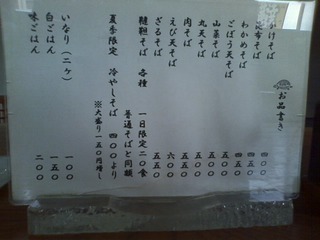 お品書き
かけそば 四〇〇
昆布そば 四五〇
わかめそば 四五〇
ごぼう天そば
山菜そば 五五〇
丸天そば 五五〇
肉そば 五五〇
えび天そば 六〇〇
ざるそば 五五〇
韃靼そば 各種 一日限定二〇食
普通そばと同額
夏季限定 冷やしそば 四〇〇より
※大盛り一五〇円増し
いなり(二ケ) 一〇〇
白ごはん 一五〇
味ごはん 二〇〇